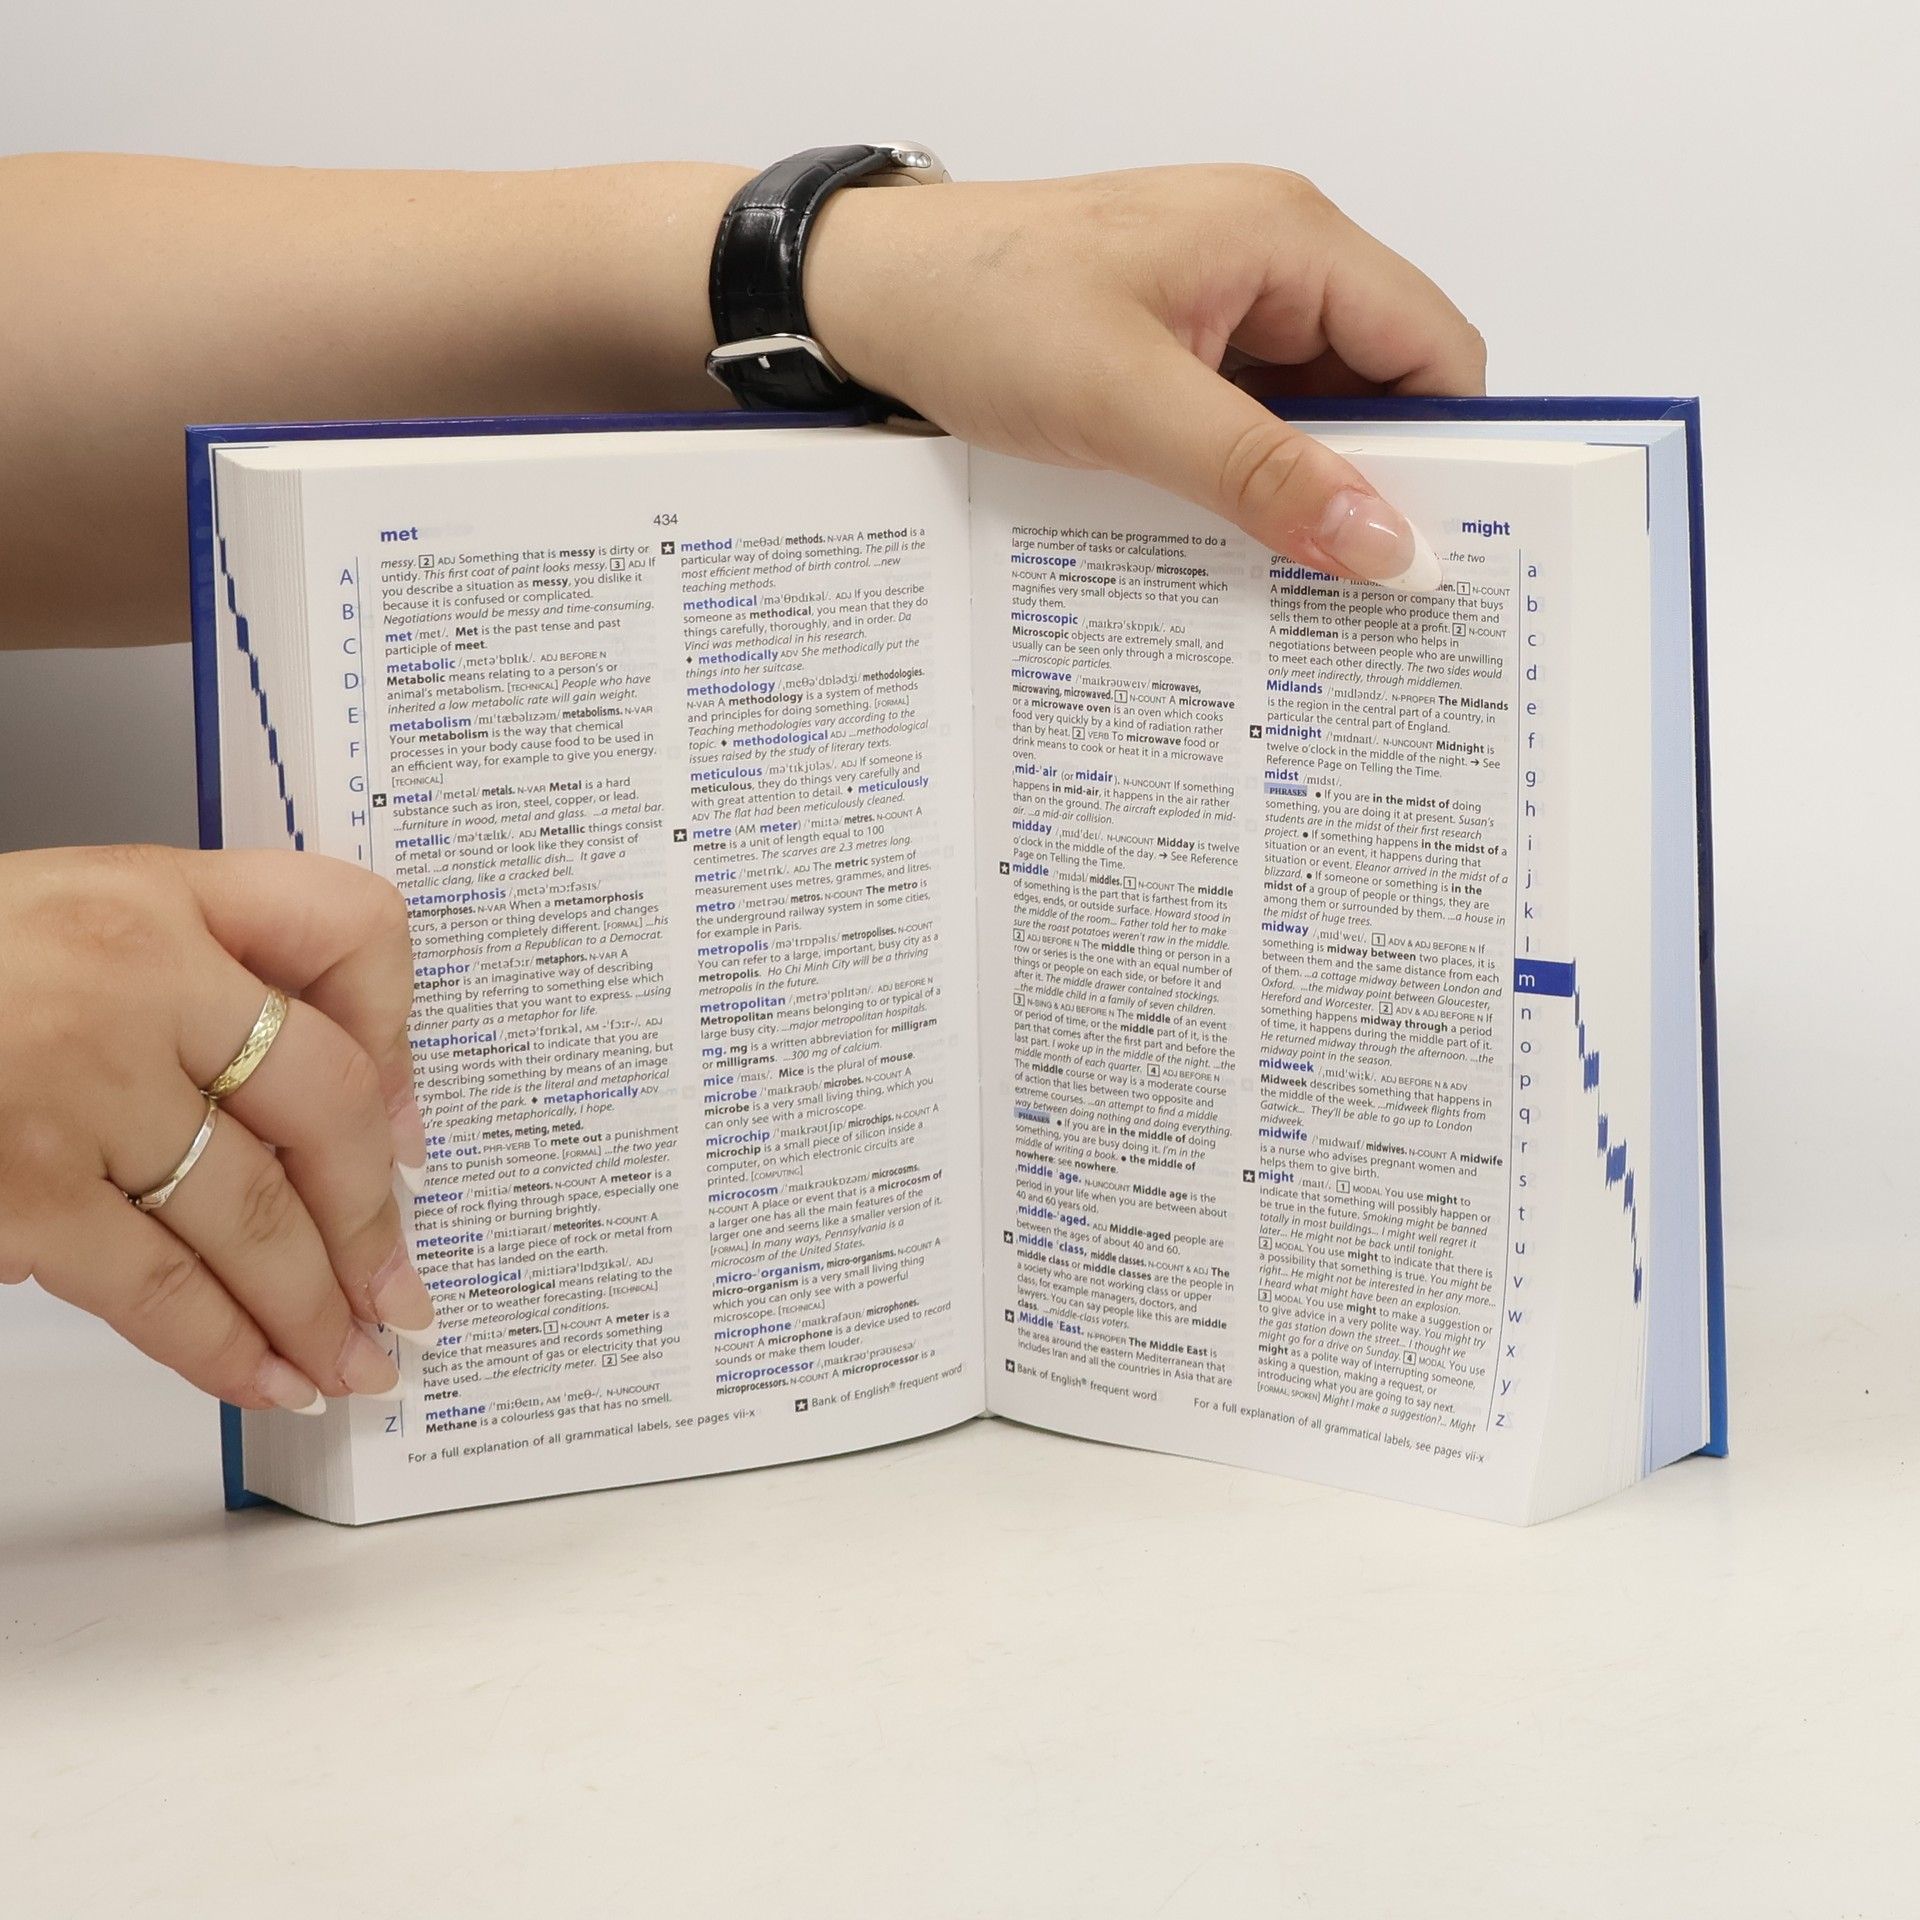 met
434
A
B
C
D
E
F
G
H
I
Z
messy. 2 ADJ Something that is messy is dirty or
untidy. This first coat of paint looks messy. 3 ADJ If
you describe a situation as messy, you dislike it
because it is confused or complicated.
Negotiations would be messy and time-consuming.
met /met/. Met is the past tense and past
participle of meet.
metabolic /ˌmetəˈbɒlɪk/. ADJ BEFORE N
Metabolic means relating to a person's or
animal's metabolism. [TECHNICAL] People who have
inherited a low metabolic rate will gain weight.
metabolism /mɪˈtæbəlɪzəm/ metabolisms. N-VAR
Your metabolism is the way that chemical
processes in your body cause food to be used in
an efficient way, for example to give you energy.
[TECHNICAL]
metal /ˈmetəl/ metals. N-VAR Metal is a hard
substance such as iron, steel, copper, or lead.
...furniture in wood, metal and glass. ...a metal bar.
metallic /məˈtælɪk/. ADJ Metallic things consist
of metal or sound or look like they consist of
metal. ...a nonstick metallic dish... It gave a
metallic clang, like a cracked bell.
etamorphosis /ˌmetəˈmɔːfəsɪs/
etamorphoses. N-VAR When a metamorphosis
curs, a person or thing develops and changes
to something completely different. [FORMAL] ...his
etamorphosis from a Republican to a Democrat.
etaphor /ˈmetəfɔːr/ metaphors. N-VAR A
etaphor is an imaginative way of describing
mething by referring to something else which
as the qualities that you want to express. ...using
dinner party as a metaphor for life.
metaphorical /ˌmetəˈfɒrɪkəl, AM -ˈfɔːr-/. ADJ
ou use metaphorical to indicate that you are
ot using words with their ordinary meaning, but
re describing something by means of an image
r symbol. The ride is the literal and metaphorical
gh point of the park. ♦ metaphorically ADV
u're speaking metaphorically, I hope.
ete /miːt/ metes, meting, meted.
ete out. PHR-VERB To mete out a punishment
eans to punish someone. [FORMAL] ...the two year
ntence meted out to a convicted child molester.
meteor /ˈmiːtiə/ meteors. N-COUNT A meteor is a
piece of rock flying through space, especially one
that is shining or burning brightly.
meteorite /ˈmiːtiəraɪt/ meteorites. N-COUNT A
meteorite is a large piece of rock or metal from
space that has landed on the earth.
meteorological /ˌmiːtiərəˈlɒdʒɪkəl/. ADJ
FORE N Meteorological means relating to the
ather or to weather forecasting. [TECHNICAL]
dverse meteorological conditions.
eter /ˈmiːtə/ meters. 1 N-COUNT A meter is a
device that measures and records something
such as the amount of gas or electricity that you
have used. ...the electricity meter. 2 See also
metre.
methane /ˈmiːθeɪn, AM ˈmeθ-/. N-UNCOUNT
Methane is a colourless gas that has no smell.
method /ˈmeθəd/ methods. N-VAR A method is a
particular way of doing something. The pill is the
most efficient method of birth control. ...new
teaching methods.
methodical /məˈθɒdɪkəl/. ADJ If you describe
someone as methodical, you mean that they do
things carefully, thoroughly, and in order. Da
Vinci was methodical in his research.
♦ methodically ADV She methodically put the
things into her suitcase.
methodology /ˌmeθəˈdɒlədʒi/ methodologies.
N-VAR A methodology is a system of methods
and principles for doing something. [FORMAL]
Teaching methodologies vary according to the
topic. ♦ methodological ADJ ...methodological
issues raised by the study of literary texts.
meticulous /məˈtɪkjʊləs/. ADJ If someone is
meticulous, they do things very carefully and
with great attention to detail. ♦ meticulously
ADV The flat had been meticulously cleaned.
metre (AM meter) /ˈmiːtə/ metres. N-COUNT A
metre is a unit of length equal to 100
centimetres. The scarves are 2.3 metres long.
metric /ˈmetrɪk/. ADJ The metric system of
measurement uses metres, grammes, and litres.
metro /ˈmetrəʊ/ metros. N-COUNT The metro is
the underground railway system in some cities,
for example in Paris.
metropolis /məˈtrɒpəlɪs/ metropolises. N-COUNT
You can refer to a large, important, busy city as a
metropolis. Ho Chi Minh City will be a thriving
metropolis in the future.
metropolitan /ˌmetrəˈpɒlɪtən/. ADJ BEFORE N
Metropolitan means belonging to or typical of a
large busy city. ...major metropolitan hospitals.
mg. mg is a written abbreviation for milligram
or milligrams. ...300 mg of calcium.
mice /maɪs/. Mice is the plural of mouse.
microbe /ˈmaɪkrəʊb/ microbes. N-COUNT A
microbe is a very small living thing, which you
can only see with a microscope.
microchip /ˈmaɪkrəʊtʃɪp/ microchips. N-COUNT A
microchip is a small piece of silicon inside a
computer, on which electronic circuits are
printed. [COMPUTING]
microcosm /ˈmaɪkrəʊkɒzəm/ microcosms.
N-COUNT A place or event that is a microcosm of
a larger one has all the main features of the
larger one and seems like a smaller version of it.
[FORMAL] In many ways, Pennsylvania is a
microcosm of the United States.
ˌmicro-ˈorganism, micro-organisms. N-COUNT A
micro-organism is a very small living thing
which you can only see with a powerful
microscope. [TECHNICAL]
microphone /ˈmaɪkrəfəʊn/ microphones.
N-COUNT A microphone is a device used to record
sounds or make them louder.
microprocessor /ˌmaɪkrəʊˈprəʊsesə/
microprocessors. N-COUNT A microprocessor is a
Bank of English® frequent word
For a full explanation of all grammatical labels, see pages vii-x
might
microchip which can be programmed to do a
large number of tasks or calculations.
microscope /ˈmaɪkrəskəʊp/ microscopes.
N-COUNT A microscope is an instrument which
magnifies very small objects so that you can
study them.
microscopic /ˌmaɪkrəˈskɒpɪk/. ADJ
Microscopic objects are extremely small, and
usually can be seen only through a microscope.
...microscopic particles.
microwave /ˈmaɪkrəʊweɪv/ microwaves,
microwaving, microwaved. 1 N-COUNT A microwave
or a microwave oven is an oven which cooks
food very quickly by a kind of radiation rather
than by heat. 2 VERB To microwave food or
drink means to cook or heat it in a microwave
oven.
ˌmid-ˈair (or midair). N-UNCOUNT If something
happens in mid-air, it happens in the air rather
than on the ground. The aircraft exploded in mid-
air. ...a mid-air collision.
midday /ˌmɪdˈdeɪ/. N-UNCOUNT Midday is twelve
o'clock in the middle of the day. → See Reference
Page on Telling the Time.
middle /ˈmɪdəl/ middles. 1 N-COUNT The middle
of something is the part that is farthest from its
edges, ends, or outside surface. Howard stood in
the middle of the room... Father told her to make
sure the roast potatoes weren't raw in the middle.
2 ADJ BEFORE N The middle thing or person in a
row or series is the one with an equal number of
things or people on each side, or before it and
after it. The middle drawer contained stockings.
...the middle child in a family of seven children.
3 N-SING & ADJ BEFORE N The middle of an event
or period of time, or the middle part of it, is the
part that comes after the first part and before the
last part. I woke up in the middle of the night. ...the
middle month of each quarter. 4 ADJ BEFORE N
The middle course or way is a moderate course
of action that lies between two opposite and
extreme courses. ...an attempt to find a middle
way between doing nothing and doing everything.
PHRASES • If you are in the middle of doing
something, you are busy doing it. I'm in the
middle of writing a book. • the middle of
nowhere: see nowhere.
ˌmiddle ˈage. N-UNCOUNT Middle age is the
period in your life when you are between about
40 and 60 years old.
ˌmiddle-ˈaged. ADJ Middle-aged people are
between the ages of about 40 and 60.
ˌmiddle ˈclass, middle classes. N-COUNT & ADJ The
middle class or middle classes are the people in
a society who are not working class or upper
class, for example managers, doctors, and
lawyers. You can say people like this are middle
class. ...middle-class voters.
ˌMiddle ˈEast. N-PROPER The Middle East is
the area around the eastern Mediterranean that
includes Iran and all the countries in Asia that are
Bank of English® frequent word
great ...the two
middleman en. 1 N-COUNT
A middleman is a person or company that buys
things from the people who produce them and
sells them to other people at a profit. 2 N-COUNT
A middleman is a person who helps in
negotiations between people who are unwilling
to meet each other directly. The two sides would
only meet indirectly, through middlemen.
Midlands /ˈmɪdləndz/. N-PROPER The Midlands
is the region in the central part of a country, in
particular the central part of England.
midnight /ˈmɪdnaɪt/. N-UNCOUNT Midnight is
twelve o'clock in the middle of the night. → See
Reference Page on Telling the Time.
midst /mɪdst/.
PHRASES • If you are in the midst of doing
something, you are doing it at present. Susan's
students are in the midst of their first research
project. • If something happens in the midst of a
situation or an event, it happens during that
situation or event. Eleanor arrived in the midst of a
blizzard. • If someone or something is in the
midst of a group of people or things, they are
among them or surrounded by them. ...a house in
the midst of huge trees.
midway /ˌmɪdˈweɪ/. 1 ADV & ADJ BEFORE N If
something is midway between two places, it is
between them and the same distance from each
of them. ...a cottage midway between London and
Oxford. ...the midway point between Gloucester,
Hereford and Worcester. 2 ADV & ADJ BEFORE N If
something happens midway through a period
of time, it happens during the middle part of it.
He returned midway through the afternoon. ...the
midway point in the season.
midweek /ˌmɪdˈwiːk/. ADJ BEFORE N & ADV
Midweek describes something that happens in
the middle of the week. ...midweek flights from
Gatwick... They'll be able to go up to London
midweek.
midwife /ˈmɪdwaɪf/ midwives. N-COUNT A midwife
is a nurse who advises pregnant women and
helps them to give birth.
might /maɪt/. 1 MODAL You use might to
indicate that something will possibly happen or
be true in the future. Smoking might be banned
totally in most buildings... I might well regret it
later... He might not be back until tonight.
2 MODAL You use might to indicate that there is
a possibility that something is true. You might be
right... He might not be interested in her any more...
I heard what might have been an explosion.
3 MODAL You use might to make a suggestion or
to give advice in a very polite way. You might try
the gas station down the street... I thought we
might go for a drive on Sunday. 4 MODAL You use
might as a polite way of interrupting someone,
asking a question, making a request, or
introducing what you are going to say next.
[FORMAL, SPOKEN] Might I make a suggestion?... Might
For a full explanation of all grammatical labels, see pages vii-x
a
b
c
d
e
f
g
h
i
j
k
l
m
n
o
p
q
r
s
t
u
v
w
x
y
z